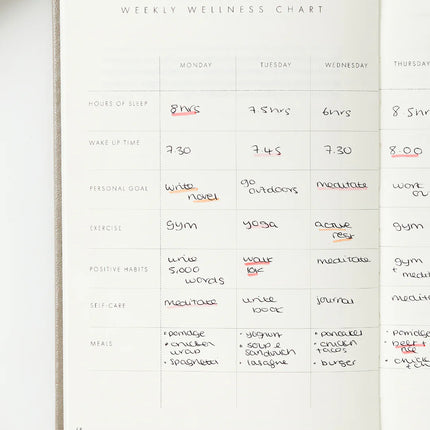 WEEKLY WELLNESS CHART
MONDAY TUESDAY WEDNESDAY THURSDAY
HOURS OF SLEEP 8hrs 7.5hrs 6hrs 8.5hr
WAKE UP TIME 7.30 7.45 7.30 8.00
PERSONAL GOAL write novel go outdoors meditate work
EXERCISE gym yoga active rest gym
POSITIVE HABITS write 5,000 words walk 10k meditate gym + medit
SELF-CARE meditate write book journal medit
MEALS
• porridge • yoghurt • pancakes • porridge
• chicken wrap • soup & sandwich • chicken tacos • beef + rice
• spaghetti • lasagne • burger • chick